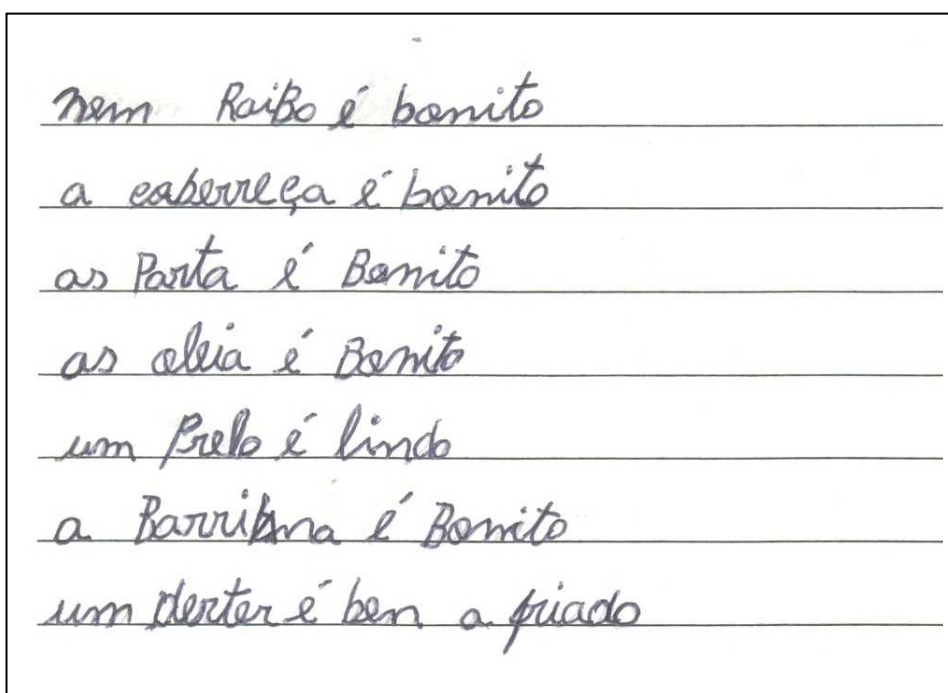 nem RaiBo é bonito
a caberreça é bonito
as Parta é Bonito
as oleia é Bonito
um Prelo é lindo
a é Bonito
um derter é ben a friado